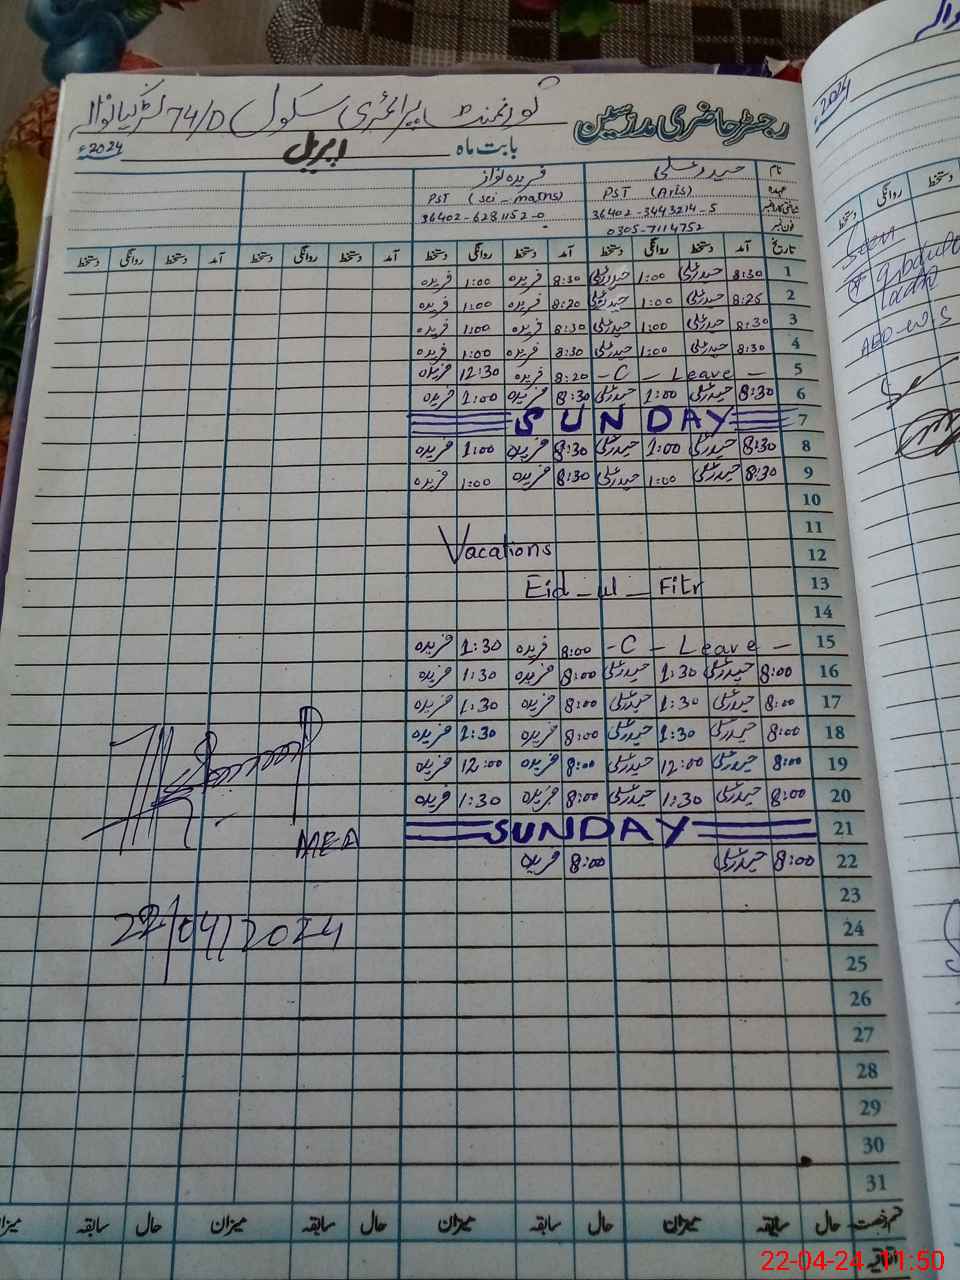 گورنمنٹ پرائمری سکول 74/D
رجسٹر حاضری مدرسین
بابت ماہ اپریل 2024ء
نام حیدر علی فریدہ نواز
عہدہ PST (Arts) PST (Sci - maths)
شناختی کارڈ نمبر 36402-3443214-5 36402-6281152-0
فون نمبر 0305-7114752
تاریخ آمد دستخط روانگی دستخط آمد دستخط روانگی دستخط آمد دستخط روانگی دستخط آمد دستخط روانگی دستخط
1 8:30 حیدر علی 1:00 حیدر علی 8:30 فریدہ 1:00 فریدہ
2 8:25 حیدر علی 1:00 حیدر علی 8:20 فریدہ 1:00 فریدہ
3 8:30 حیدر علی 1:00 حیدر علی 8:30 فریدہ 1:00 فریدہ
4 8:30 حیدر علی 1:00 حیدر علی 8:30 فریدہ 1:00 فریدہ
5 - C - Leave - 8:20 فریدہ 12:30 فریدہ
6 8:30 حیدر علی 1:00 حیدر علی 8:30 فریدہ 1:00 فریدہ
7 SUNDAY
8 8:30 حیدر علی 1:00 حیدر علی 8:30 فریدہ 1:00 فریدہ
9 8:30 حیدر علی 1:00 حیدر علی 8:30 فریدہ 1:00 فریدہ
10
11
12 Vacations
13 Eid_ul_Fitr
14
15 - C - Leave - 8:00 فریدہ 1:30 فریدہ
16 8:00 حیدر علی 1:30 حیدر علی 8:00 فریدہ 1:30 فریدہ
17 8:00 حیدر علی 1:30 حیدر علی 8:00 فریدہ 1:30 فریدہ
18 8:00 حیدر علی 1:30 حیدر علی 8:00 فریدہ 1:30 فریدہ
19 8:00 حیدر علی 12:00 حیدر علی 8:00 فریدہ 12:00 فریدہ
20 8:00 حیدر علی 1:30 حیدر علی 8:00 فریدہ 1:30 فریدہ
21 SUNDAY
22 8:00 حیدر علی 8:00 فریدہ
MEA
23
24
22/04/2024
25
26
27
28
29
30
31
قسم رخصت حال سابقہ میزان حال سابقہ میزان حال سابقہ میزان حال سابقہ میزان
اتفاقیہ
2024ء
دستخط روانگی دستخط
Seen
AEO-W.S
22-04-24 11:50